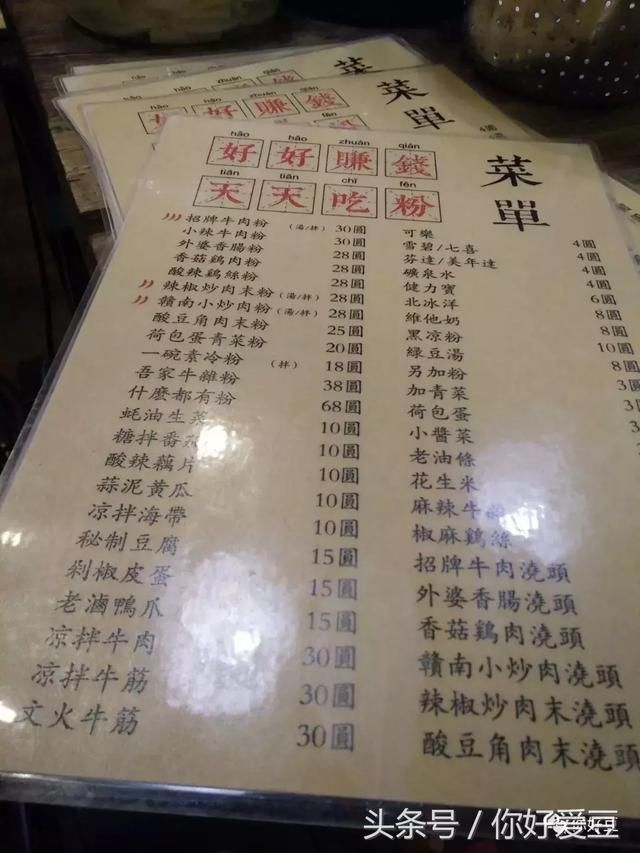 菜
菜單
hǎo hǎo zhuàn qián
好好賺錢
菜單
hǎo hǎo zhuàn qián
好好賺錢
tiān tiān chī fěn
天天吃粉
招牌牛肉粉 (湯/拌) 30圓
小辣牛肉粉 30圓
外婆香腸粉 28圓
香菇鷄肉粉 28圓
酸辣鷄絲粉 28圓
辣椒炒肉末粉 (湯/拌) 28圓
贛南小炒肉粉 (湯/拌) 28圓
酸豆角肉末粉 25圓
荷包蛋青菜粉 20圓
一碗素冷粉 (拌) 18圓
吾家牛雜粉 38圓
什麽都有粉 68圓
蚝油生菜 10圓
糖拌番茄 10圓
酸辣藕片 10圓
蒜泥黃瓜 10圓
凉拌海帶 10圓
秘制豆腐 15圓
剁椒皮蛋 15圓
老滷鴨爪 15圓
凉拌牛肉 30圓
凉拌牛筋 30圓
文火牛筋 30圓
可樂 4圓
雪碧/七喜 4圓
芬達/美年達 4圓
礦泉水 4圓
健力寶 6圓
北冰洋 8圓
維他奶 8圓
黑凉粉 10圓
綠豆湯 8圓
另加粉 3圓
加青菜 3
荷包蛋
小醬菜
老油條
花生米
麻辣牛
椒麻鷄絲
招牌牛肉澆頭
外婆香腸澆頭
香菇鷄肉澆頭
贛南小炒肉澆頭
辣椒炒肉末澆頭
酸豆角肉末澆頭
头条号 / 你好爱豆